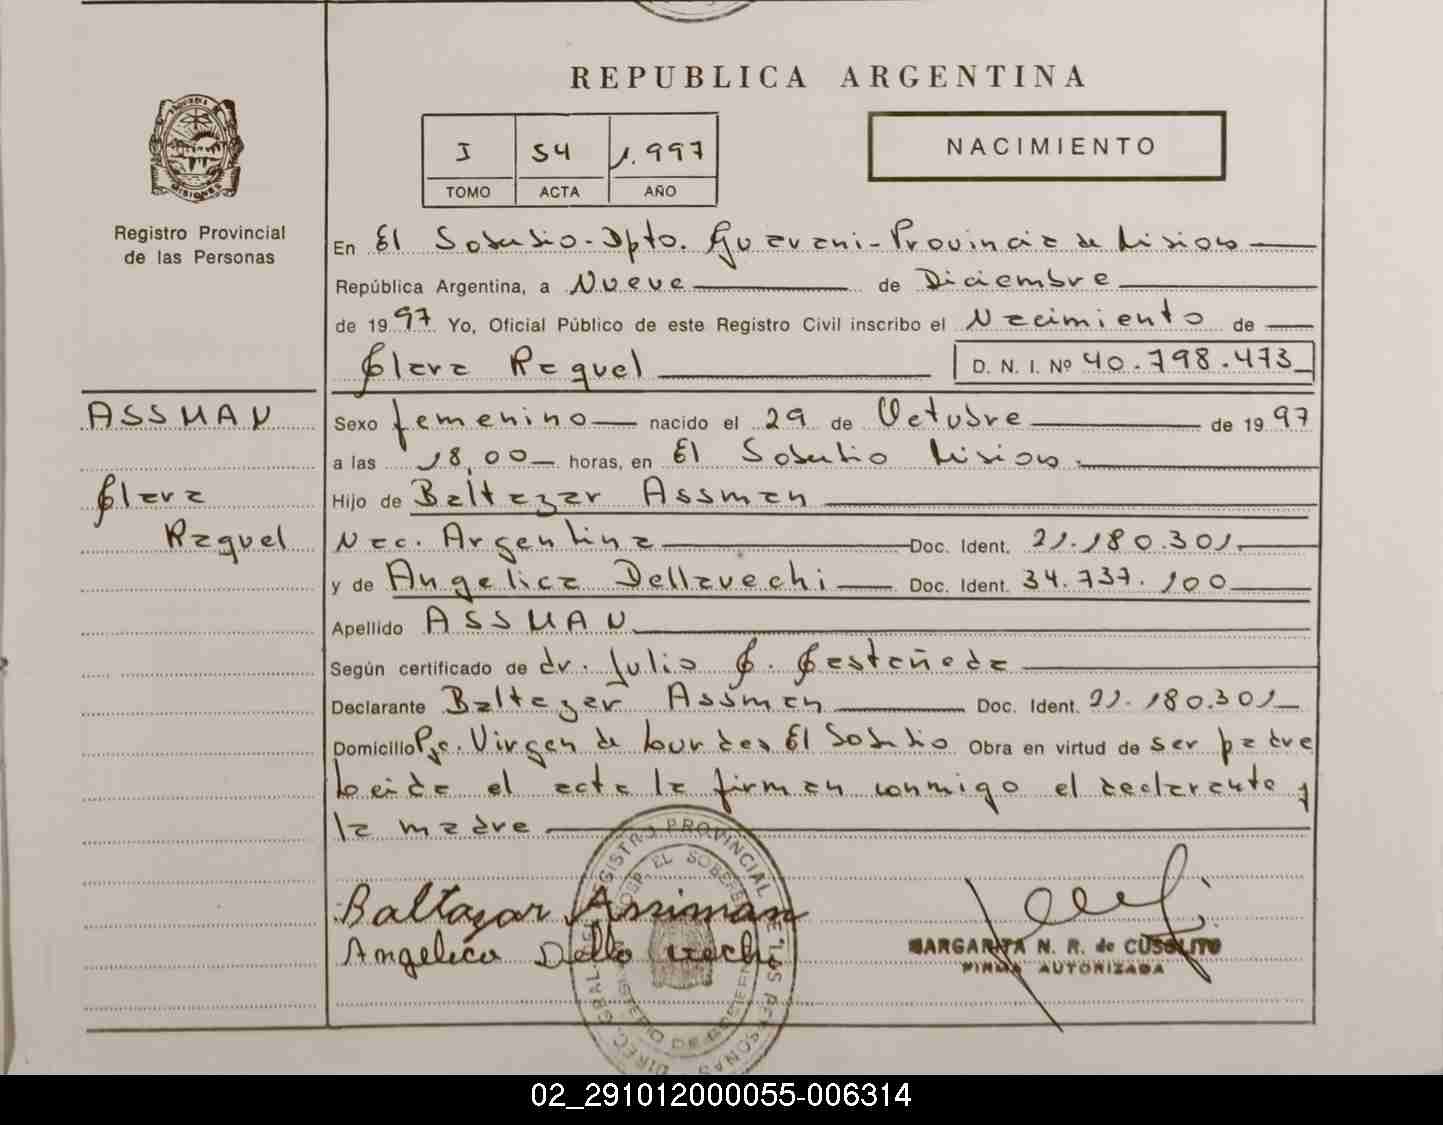 REPUBLICA ARGENTINA
I 54 1.997
TOMO ACTA AÑO
NACIMIENTO
MISIONES
Registro Provincial
de las Personas
En El Soberbio - Dpto. Guarani - Provincia de Misiones
República Argentina, a Nueve de Diciembre
de 1997 Yo, Oficial Público de este Registro Civil inscribo el Nacimiento de
Clara Raquel D. N. I. Nº 40.798.473
ASSMAN
Clara
Raquel
Sexo femenino nacido el 29 de Octubre de 1997
a las 18,00 horas, en El Soberbio Misiones.
Hijo de Baltazar Assman
Nac. Argentina Doc. Ident. 21.180.301
y de Angelica Dellavechi Doc. Ident. 34.737.100
Apellido ASSMAN
Según certificado de dr. Julio C. Castañeda
Declarante Baltazar Assman Doc. Ident. 21.180.301
Domicilio Pje. Virgen de Lourdes El Soberbio Obra en virtud de ser padre
Leida el acta la firman conmigo el declarante y
la madre
Baltazar Assiman
Angelica Della vechi
MARGARITA N. R. de CUSOLITO
FIRMA AUTORIZADA
REGISTRO PROVINCIAL DE LAS PERSONAS
02_291012000055-006314